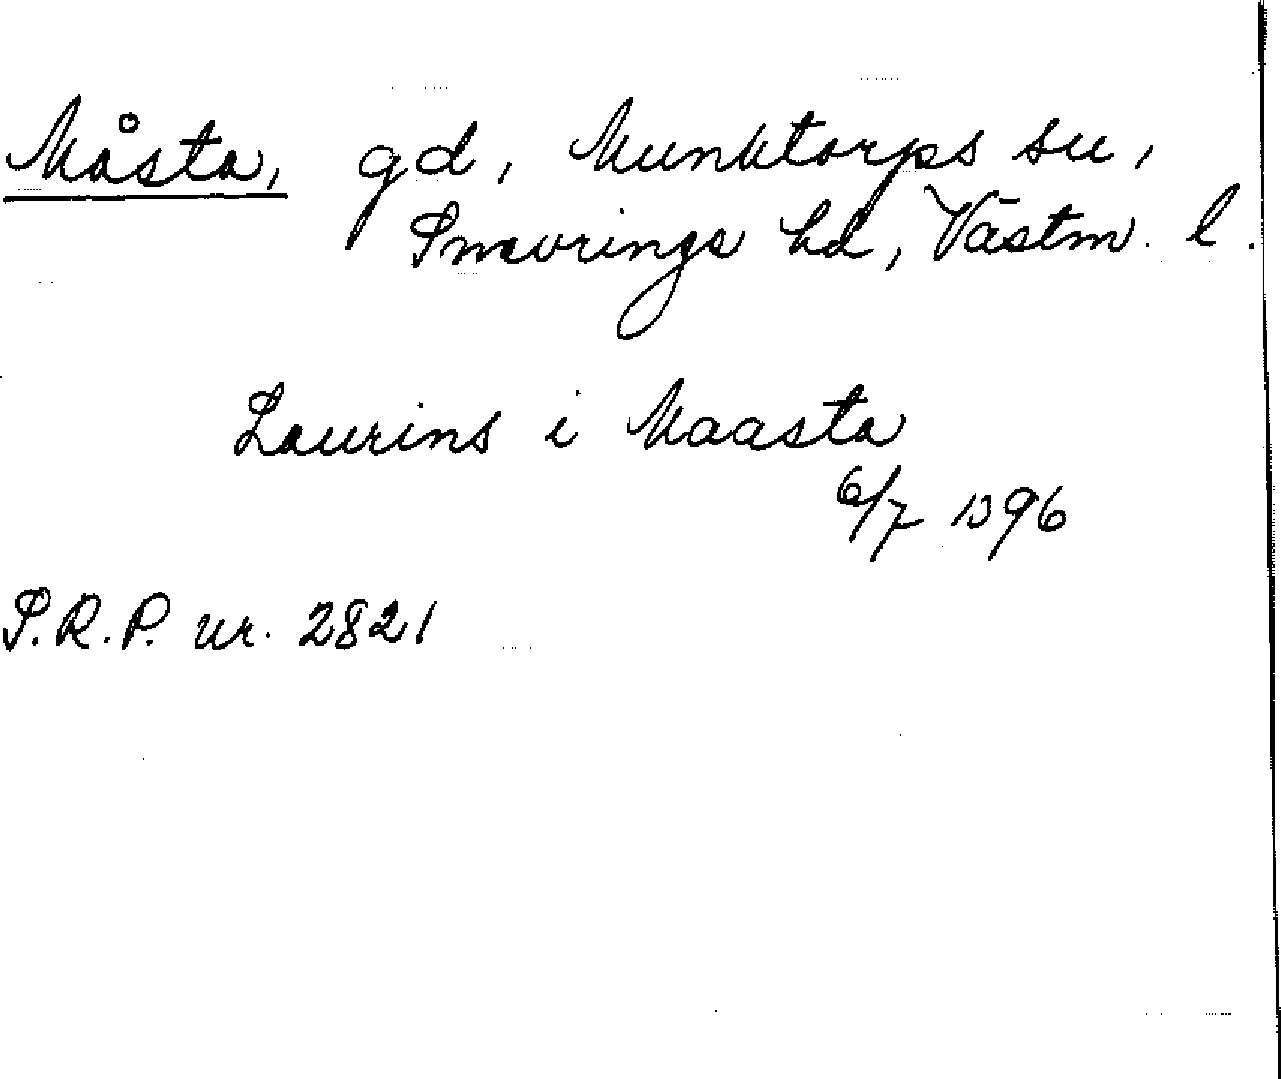 Måsta, gd, Munktorps sn,
Snevringe hd, Västm. l.
Laurins i Maasta
6/7 1396
S.R.P. nr. 2821